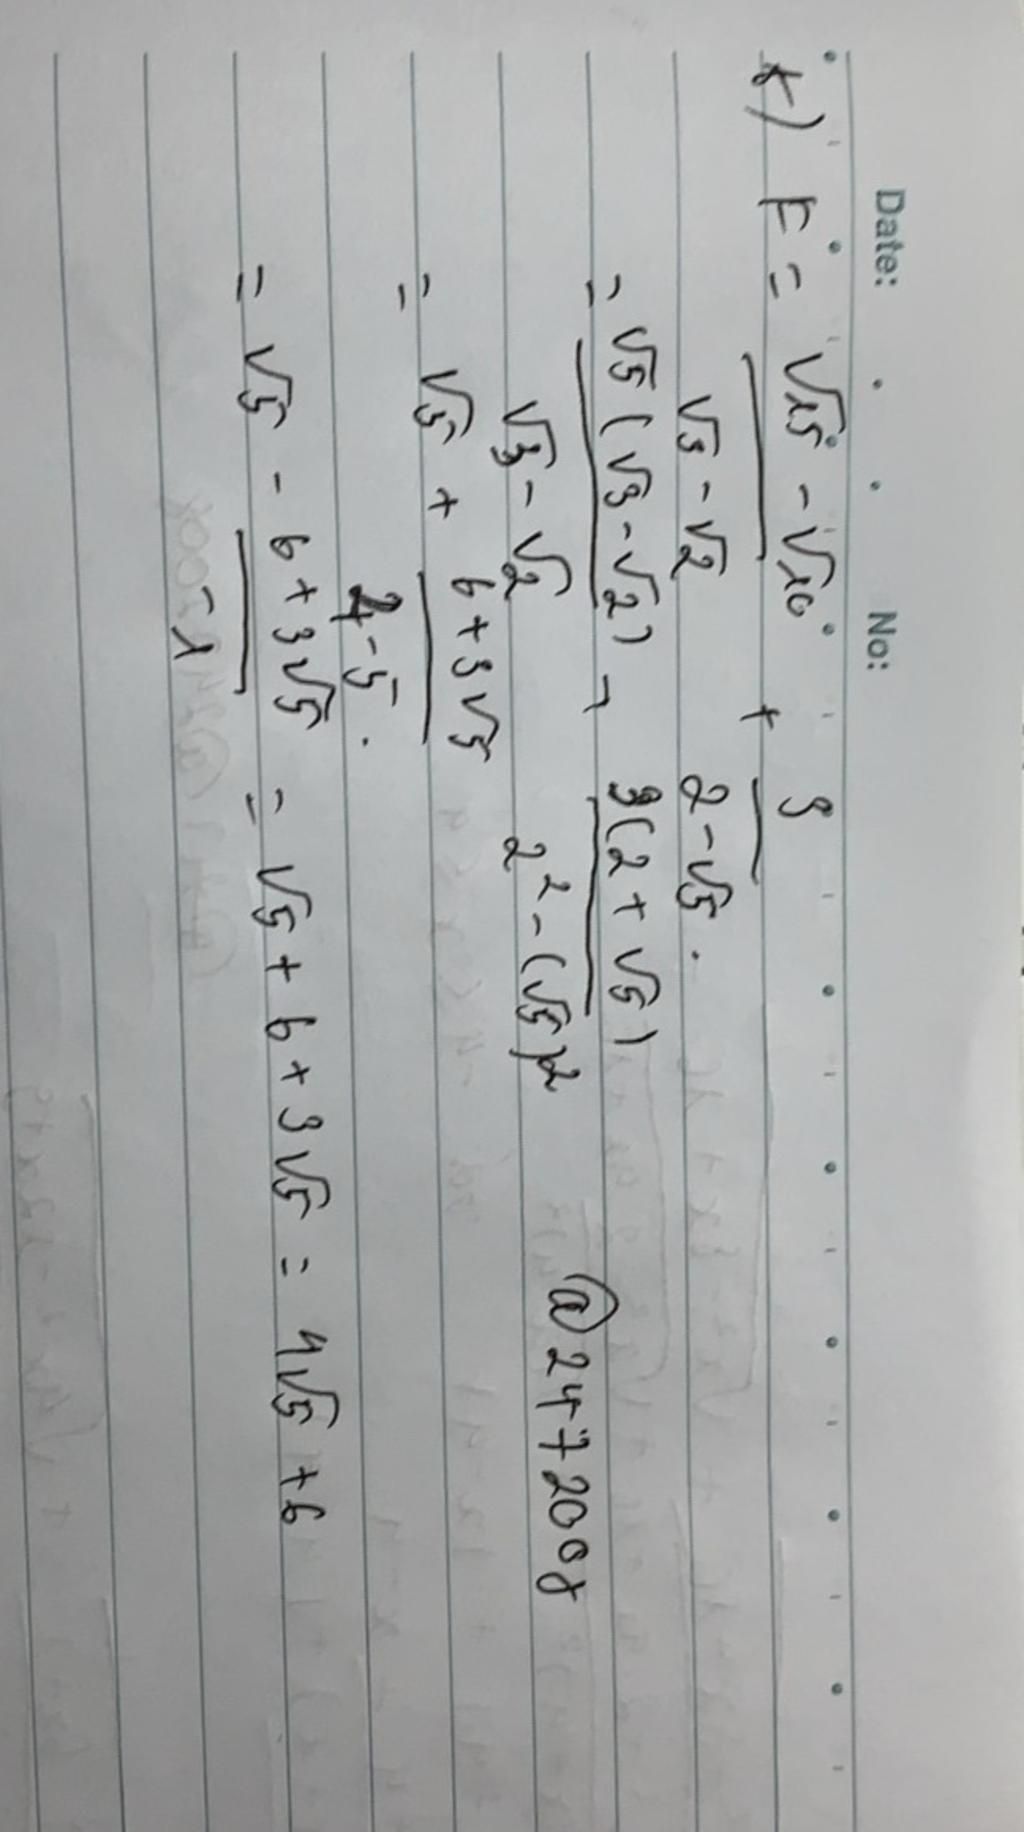 Date: No:
f) F = √15 - √10 / √3 - √2 + 3 / 2 - √5 .
= √5 (√3 - √2) / √3 - √2 + 3(2 + √5) / 2² - (√5)²
@2472008
= √5 + 6 + 3√5 / 4 - 5 .
= √5 - 6 + 3√5 / 1 = √5 + 6 + 3√5 = 4√5 + 6